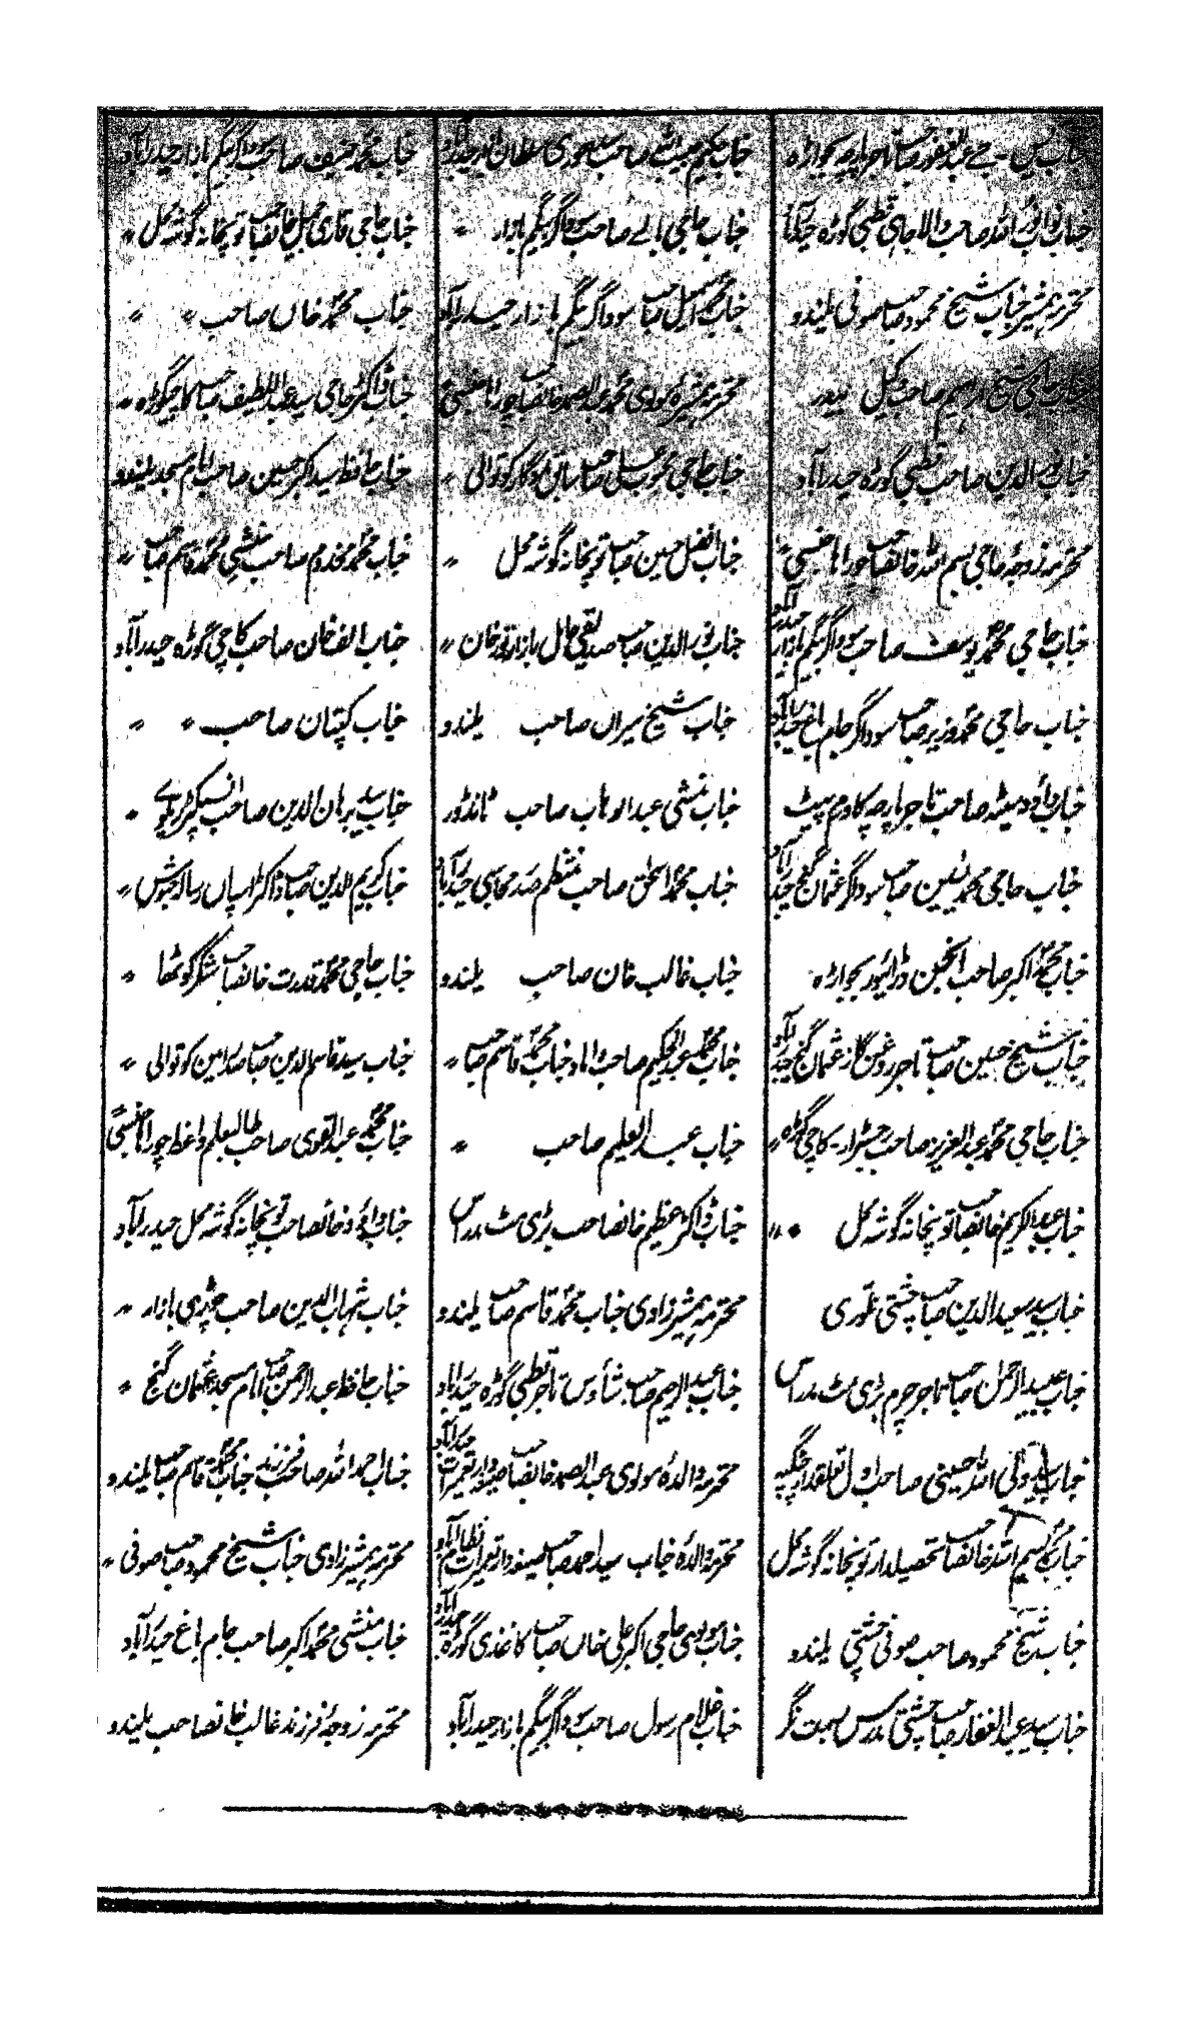 جناب یس۔ جے عبدالغفور صاحب تاجر پارچہ بیجواڑہ
جناب نواب نور اللہ صاحب والا جاہی قطبی گوڑہ حیدرآباد
محترمہ ہمشیر جناب شیخ محمود صاحب صوفی یلندو
جناب حاجی شیخ ابراہیم صاحب وکیل بیدر
جناب نور الدین صاحب قطبی گوڑہ حیدرآباد
محترمہ زوجہ حاجی بسم اللہ خانصاحب چوراہا حبشی ״
جناب حاجی محمد یوسف صاحب سوداگر بیگم بازار حیدرآباد
جناب حاجی محمد وزیر صاحب سوداگر جام باغ حیدرآباد
جناب داؤد میٹھ صاحب تاجر پارچہ کاوم پیٹ
جناب حاجی محمد یٰسین صاحب سوداگر عثمان گنج حیدرآباد
جناب محمد اکبر صاحب انجن ڈرائیور بیجواڑہ
جناب شیخ حسین صاحب تاجر روغن گاز عثمان گنج حیدرآباد
جناب حاجی محمد عبدالعزیز صاحب جمیٹرار۔ کاچی گوڑہ ״
جناب عبدالکریم خانصاحب توپخانہ گوشہ محل ״
جناب سید سعید الدین صاحب چشتی غوری
جناب عبیدالرحمٰن صاحب تاجر چرم بڑی مٹ مدراس
جناب سید ولی اللہ حسینی صاحب اول تعلقدار
جناب محمد بسم اللہ خانصاحب تحصیلدار توپخانہ گوشہ محل
جناب شیخ محمود صاحب صوفی چشتی یلندو
جناب سید عبدالغفار صاحب چشتی مدرس بسمت نگر
جناب حکیم صاحب منصوری سلطان پور حیدرآباد
جناب حاجی صاحب سوداگر بیگم بازار ״
جناب محمد اسمٰعیل صاحب سوداگر بیگم بازار حیدرآباد
محترمہ ہمشیرہ مولوی محمد عبدالصمد خانصاحب چوراہا حبشی
جناب حاجی محبوب علی صاحب سابق مددگار کوتوالی ״
جناب افضل حسین صاحب توپخانہ گوشہ محل ״
جناب نور الدین صاحب صدیقی حال بازار نور خان ״
جناب شیخ میراں صاحب یلندو
جناب منشی عبدالوہاب صاحب ٹانڈور
جناب محمد اسحٰق صاحب منتظم صدر محاسبی حیدرآباد
جناب غالب خان صاحب یلندو
جناب محمد عبدالحکیم صاحب داماد جناب محمد قاسم صاحب ״
جناب عبدالعلیم صاحب ״
جناب ڈاکٹر عظیم خانصاحب بڑی مٹ مدراس
محترمہ ہمشیرزادی جناب محمد قاسم صاحب یلندو
جناب عبدالرحیم صاحب تاجر قطبی گوڑہ حیدرآباد
محترمہ والدہ مولوی عبدالصمد خانصاحب صیغہ دار تعمیرات حیدرآباد
محترمہ والدۂ جناب سید احمد صاحب صیغہ دار تعمیرات نظام آباد
جناب مولوی حاجی اکبر علی خاں صاحب کاغذی گوڑہ حیدرآباد
جناب غلام رسول صاحب سوداگر بیگم بازار حیدرآباد
جناب محمد حنیف صاحب سوداگر بیگم بازار حیدرآباد
جناب حاجی قاری جمیل خانصاحب توپخانہ گوشہ محل ״
جناب محمد خاں صاحب ״ ״
جناب ڈاکٹر حاجی سید عبداللطیف صاحب کاچیگوڑہ ״
جناب حافظ سید اکبر حسین صاحب امام مسجد یلندو
جناب محمد مخدوم صاحب منشی محمد قاسم صاحب ״
جناب الف خان صاحب کاچی گوڑہ حیدرآباد
جناب کپتان صاحب ״ ״
جناب سید برہان الدین صاحب انسپکٹر ریلوے ״
جناب کریم الدین صاحب ڈاکٹر اسپاں رسالہ حبوش ״
جناب حاجی محمد قدرت خانصاحب شکر کوٹھا ״
جناب سید قاسم الدین صاحب صدر امین کوتوالی ״
جناب محمد عبدالقوی صاحب طالبعلم واعظ چوراہا حبشی ״
جناب داؤد خانصاحب توپخانہ گوشہ محل حیدرآباد
جناب شہاب الدین صاحب چوڑی بازار ״
جناب حافظ عبدالرحمن صاحب امام مسجد عثمان گنج ״
جناب احمد اللہ صاحب فرزند جناب محمد قاسم صاحب یلندو
محترمہ ہمشیرزادی جناب شیخ محمود صاحب صوفی ״
جناب منشی محمد اکبر صاحب جام باغ حیدرآباد
محترمہ زوجہ فرزند غالب خانصاحب یلندو